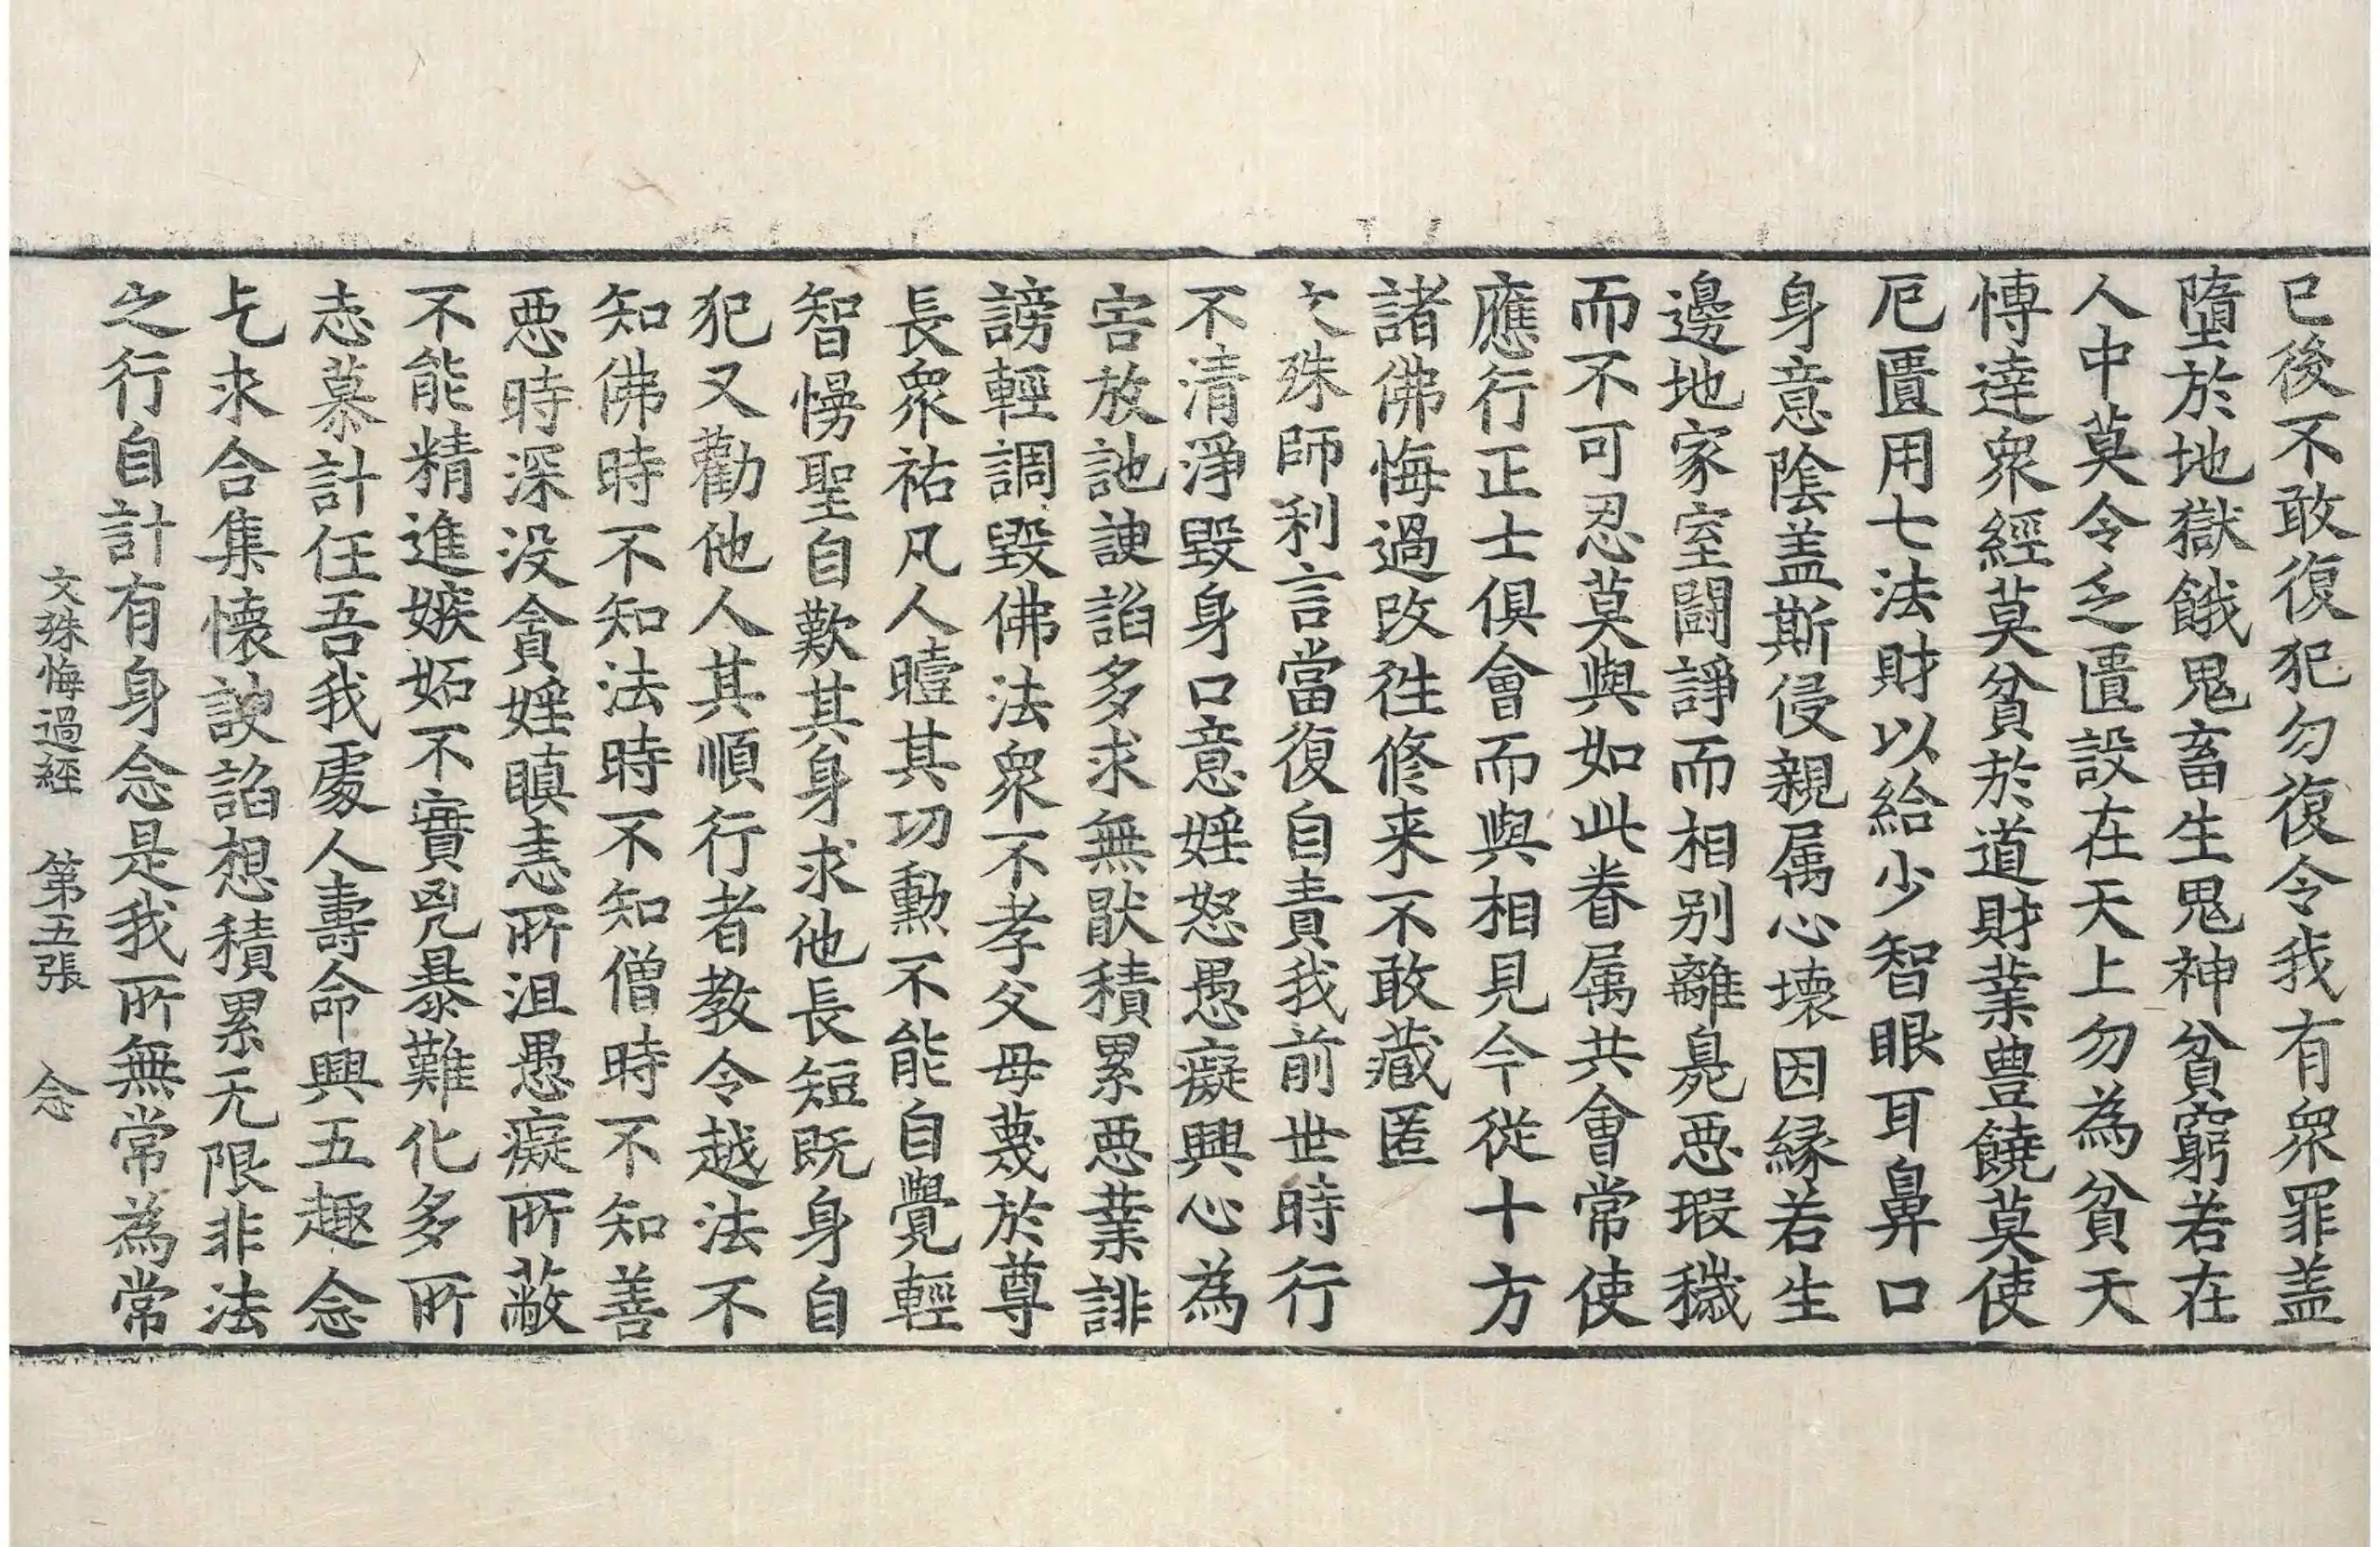 已後不敢復犯勿復令我有衆罪盖
墮於地獄餓鬼畜生鬼神貧窮若在
人中莫令乏匱設在天上勿為貧天
愽達衆經莫貧於道財業豊饒莫使
厄匱用七法財以給少智眼耳鼻口
身意陰盖斯侵親属心壊因縁若生
邊地家室闘諍而相别離臰惡瑕穢
而不可忍莫與如此眷属共會常使
應行正士俱會而與相見今従十方
諸佛悔過改徃修来不敢藏匿
文殊師利言當復自責我前世時行
不清淨毀身口意婬怒愚癡興心為
害放訑諛謟多求無猒積累惡業誹
謗輕調毀佛法衆不孝父母薎於尊
長衆祐凡人曀其功勳不能自覺輕
智慢聖自歎其身求他長短既身自
犯又勸他人其順行者教令越法不
知佛時不知法時不知僧時不知善
惡時深没貪婬瞋恚所沮愚癡所蔽
不能精進嫉妬不實兇暴難化多所
志慕計任吾我處人壽命興五趣念
乞求合集懐諛謟想積累无限非法
之行自計有身念是我所無常為常
文殊悔過經　第五張　念